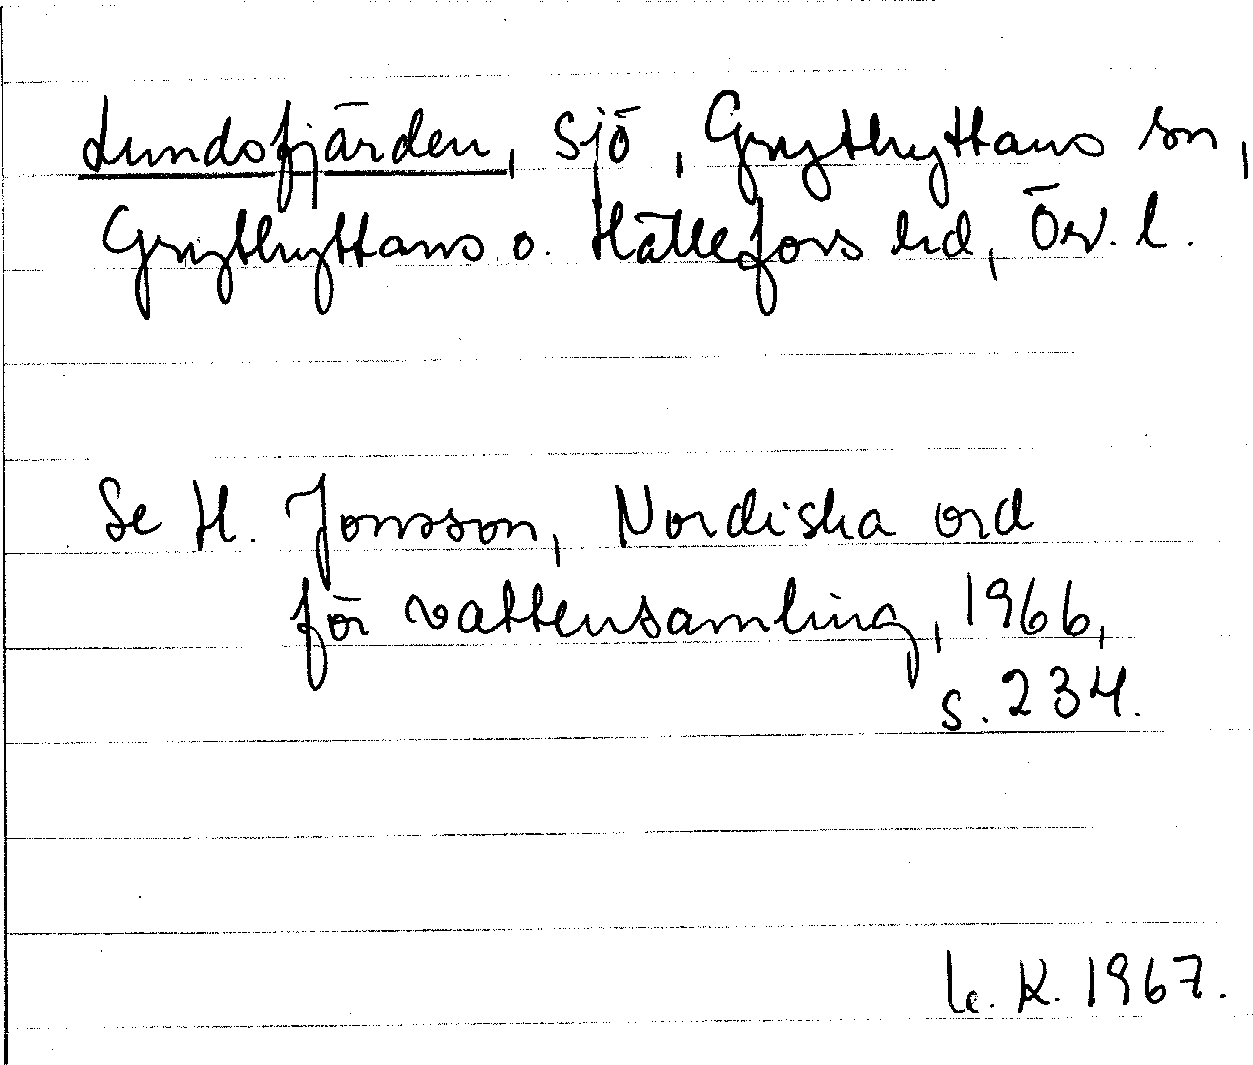 Lundsfjärden, sjö, Grythyttans sn,
Grythyttans o. Hällefors hd, Örv. l.
Se H. Jonsson, Nordiska ord
för vattensamling, 1966,
s. 234.
K. 1967.